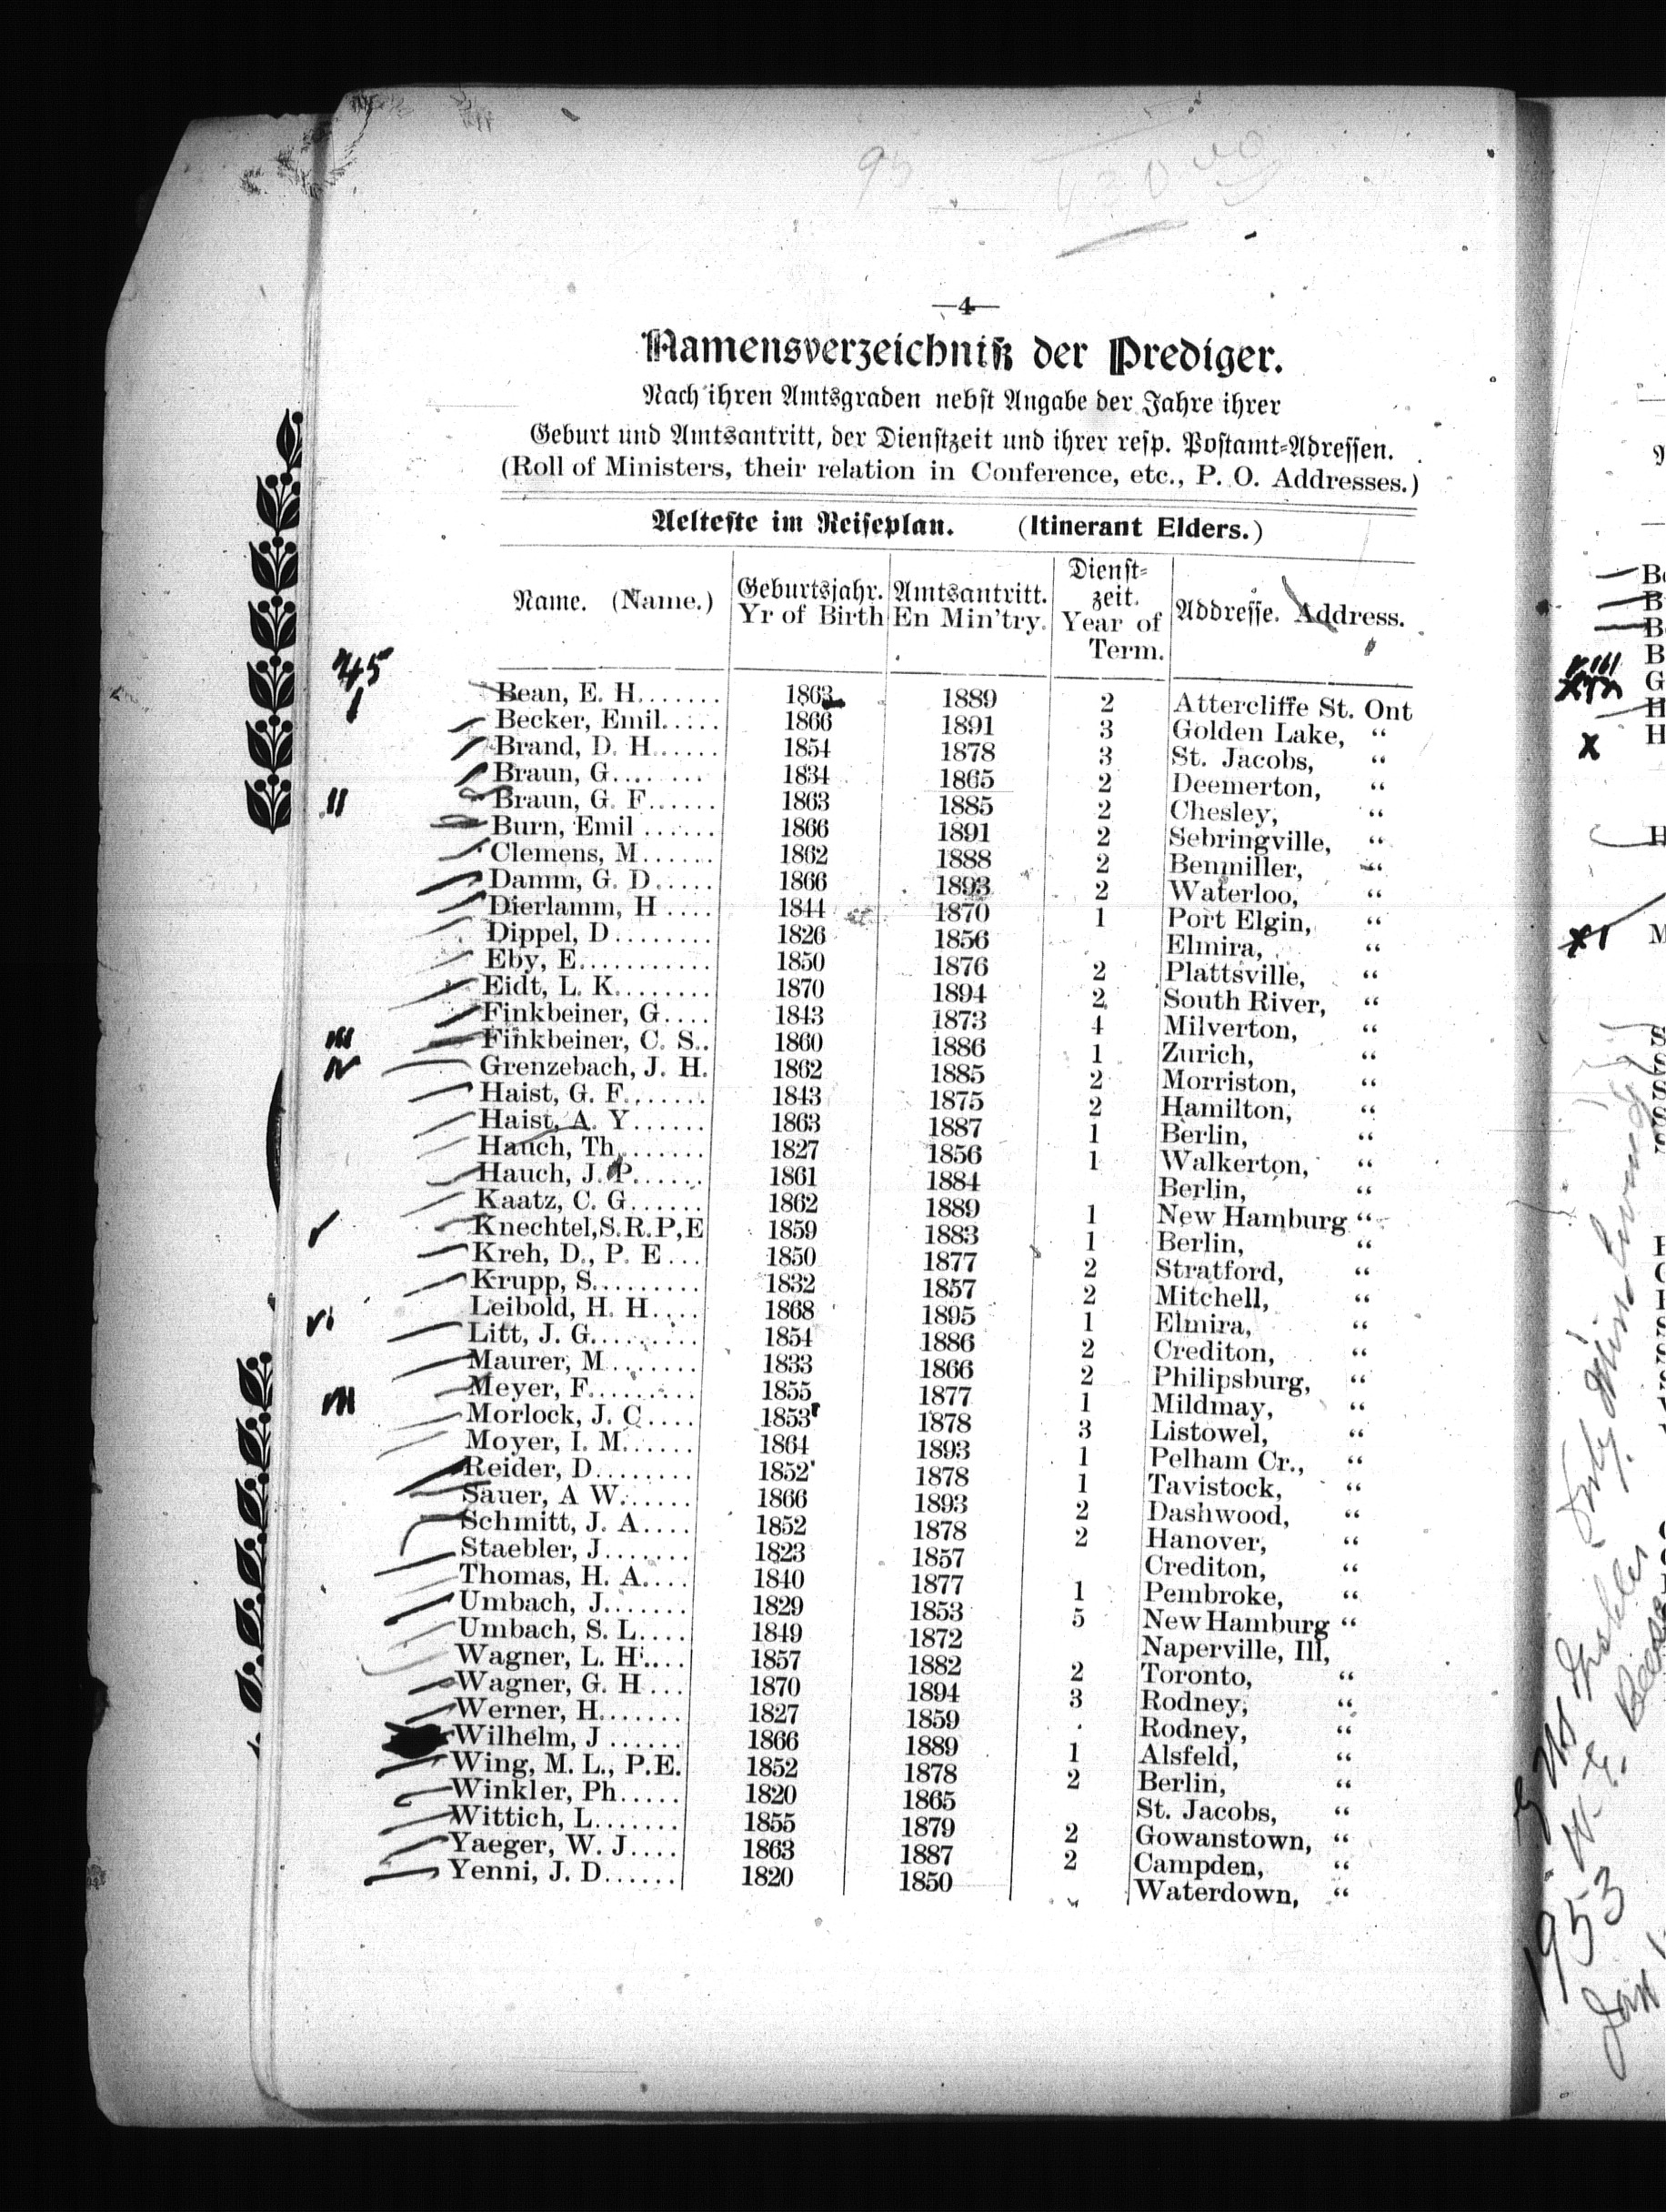 —4—
Namensverzeichniß der Prediger.
Nach ihren Amtsgraden nebst Angabe der Jahre ihrer
Geburt und Amtsantritt, der Dienstzeit und ihrer resp. Postamt-Adressen.
(Roll of Ministers, their relation in Conference, etc., P. O. Addresses.)
Aelteste im Reiseplan. (Itinerant Elders.)
Name. (Name.) Geburtsjahr. Yr of Birth Amtsantritt. En Min'try. Dienst-zeit. Year of Term. Addresse. Address.
45
Bean, E. H....... 1863 1889 2 Attercliffe St. Ont
Becker, Emil..... 1866 1891 3 Golden Lake, “
Brand, D. H...... 1854 1878 3 St. Jacobs, “
Braun, G........ 1834 1865 2 Deemerton, “
Braun, G. F...... 1863 1885 2 Chesley, “
Burn, Emil ...... 1866 1891 2 Sebringville, “
Clemens, M...... 1862 1888 2 Benmiller, “
Damm, G. D..... 1866 1893 2 Waterloo, “
Dierlamm, H .... 1844 1870 1 Port Elgin, “
Dippel, D........ 1826 1856 Elmira, “
Eby, E........... 1850 1876 2 Plattsville, “
Eidt, L. K........ 1870 1894 2 South River, “
Finkbeiner, G.... 1843 1873 4 Milverton, “
Finkbeiner, C. S.. 1860 1886 1 Zurich, “
Grenzebach, J. H. 1862 1885 2 Morriston, “
Haist, G. F....... 1843 1875 2 Hamilton, “
Haist, A. Y...... 1863 1887 1 Berlin, “
Hauch, Th....... 1827 1856 1 Walkerton, “
Hauch, J. P...... 1861 1884 Berlin, “
Kaatz, C. G...... 1862 1889 1 New Hamburg “
Knechtel,S.R.P,E 1859 1883 1 Berlin, “
Kreh, D., P. E... 1850 1877 2 Stratford, “
Krupp, S......... 1832 1857 2 Mitchell, “
Leibold, H. H.... 1868 1895 1 Elmira, “
Litt, J. G......... 1854 1886 2 Crediton, “
Maurer, M....... 1833 1866 2 Philipsburg, “
Meyer, F......... 1855 1877 1 Mildmay, “
Morlock, J. C.... 1853 1878 3 Listowel, “
Moyer, I. M...... 1864 1893 1 Pelham Cr., “
Reider, D........ 1852 1878 1 Tavistock, “
Sauer, A W...... 1866 1893 2 Dashwood, “
Schmitt, J. A.... 1852 1878 2 Hanover, “
Staebler, J....... 1823 1857 Crediton, “
Thomas, H. A.... 1840 1877 1 Pembroke, “
Umbach, J....... 1829 1853 5 New Hamburg “
Umbach, S. L.... 1849 1872 Naperville, Ill,
Wagner, L. H.... 1857 1882 2 Toronto, “
Wagner, G. H... 1870 1894 3 Rodney, “
Werner, H....... 1827 1859 Rodney, “
Wilhelm, J ...... 1866 1889 1 Alsfeld, “
Wing, M. L., P.E. 1852 1878 2 Berlin, “
Winkler, Ph..... 1820 1865 St. Jacobs, “
Wittich, L....... 1855 1879 2 Gowanstown, “
Yaeger, W. J.... 1863 1887 2 Campden, “
Yenni, J. D...... 1820 1850 Waterdown, “
1953